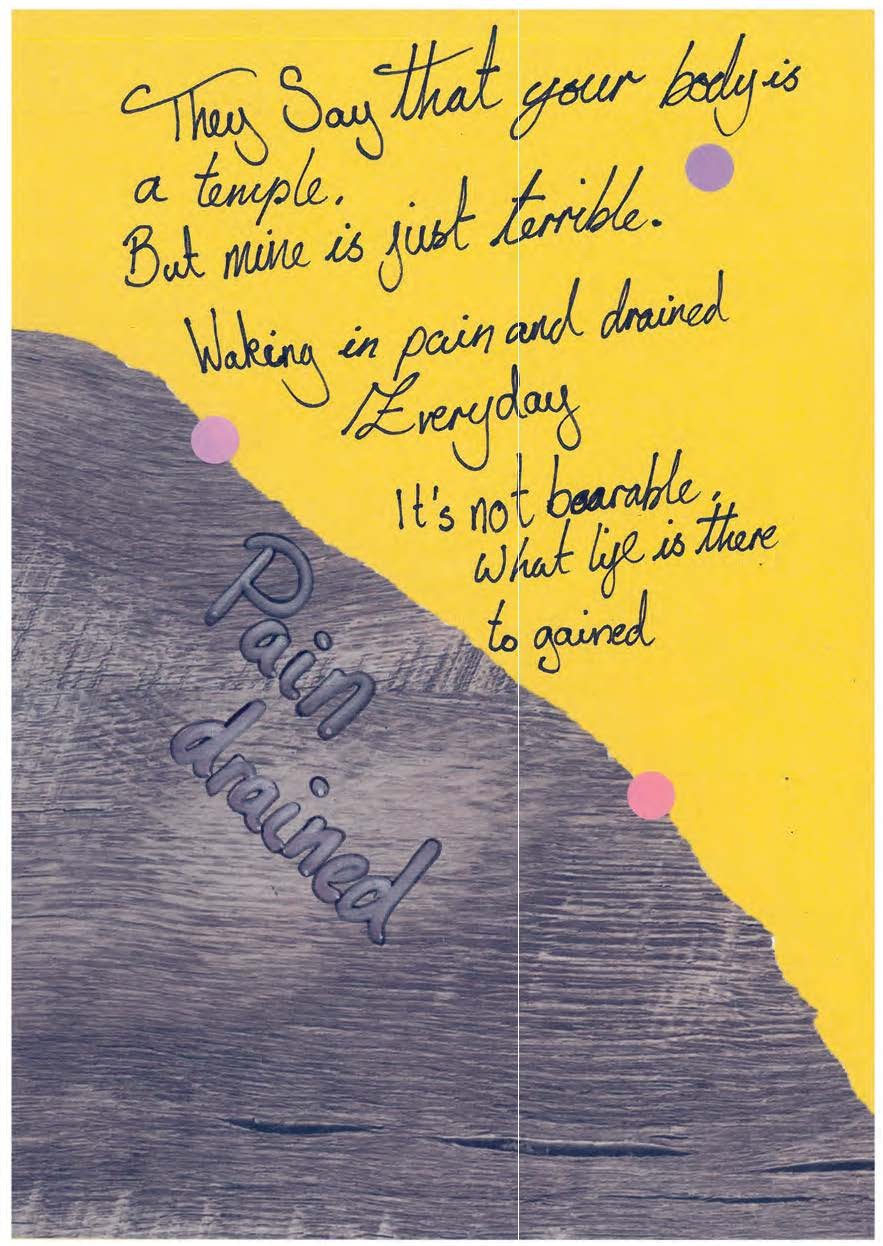 They Say that your body is
a temple.
But mine is just terrible.
Waking in pain and drained
Everyday
It's not bearable.
What life is there
to gained
Pain
drained